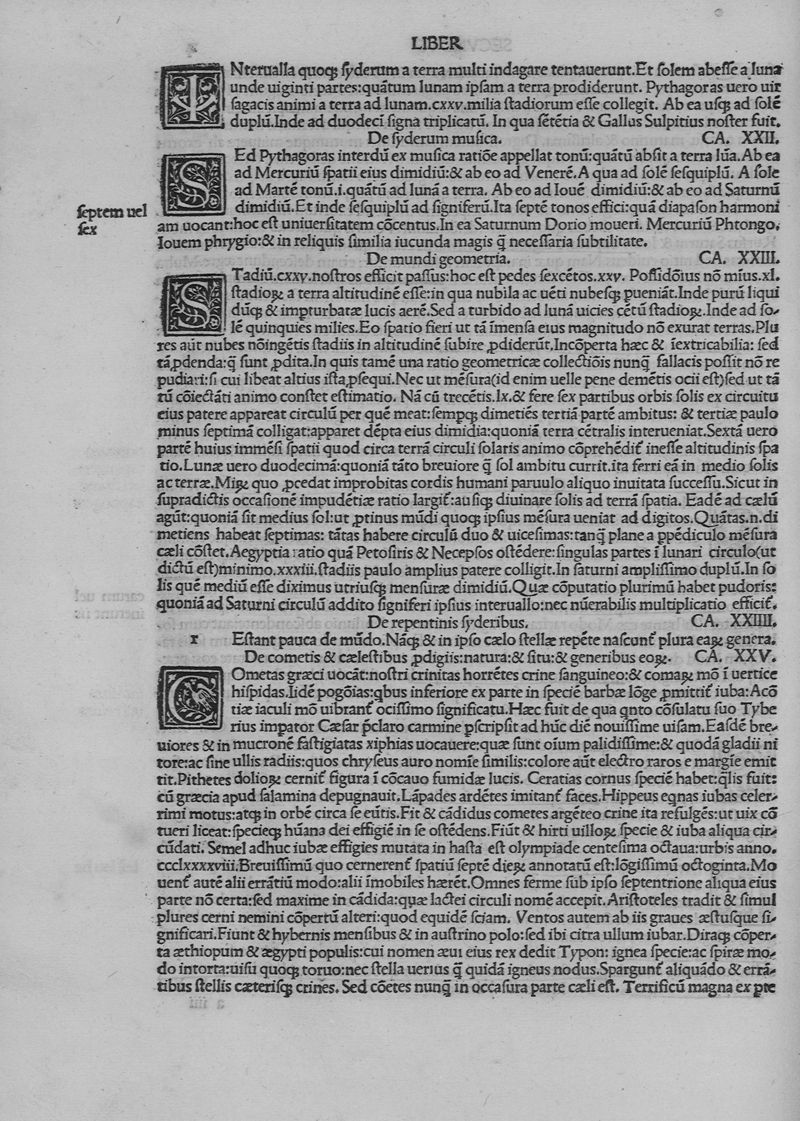 LIBER
INterualla quoqꝫ ſyderum a terra multi indagare tentauerunt.Et ſolem abeſſe a luna
unde uiginti partes:quãtum lunam ipſam a terra prodiderunt. Pythagoras uero uir
ſagacis animi a terra ad lunam.cxxv.milia ſtadiorum eſſe collegit. Ab ea uſqꝫ ad ſolẽ
duplũ.Inde ad duodecĩ ſigna triplicatũ. In qua ſẽtẽtia & Gallus Sulpitius noſter fuit.
De ſyderum muſica. CA. XXII.
SEd Pythagoras interdũ ex muſica ratiõe appellat tonũ:quãtũ abſit a terra lũa.Ab ea
ad Mercuriũ ſpatii eius dimidiũ:& ab eo ad Venerẽ.A qua ad ſolẽ ſeſquiplũ. A ſole
ad Martẽ tonũ.i.quãtũ ad lunã a terra. Ab eo ad Iouẽ dimidiũ:& ab eo ad Saturnũ
dimidiũ.Et inde ſeſquiplũ ad ſigniferũ.Ita ſeptẽ tonos effici:quã diapaſon harmoni
ſeptem uel
ſex
am uocant:hoc eſt uniuerſitatem cõcentus.In ea Saturnum Dorio moueri. Mercuriũ Phtongo.
Iouem phrygio:& in reliquis ſimilia iucunda magis q̃ neceſſaria ſubtilitate.
De mundi geometria. CA. XXIII.
STadiũ.cxxv.noſtros efficit paſſus:hoc eſt pedes ſexcẽtos.xxv. Poſſidõius nõ mĩus.xl.
ſtadioꝝ a terra altitudinẽ eſſe:in qua nubila ac uẽti nubeſqꝫ ꝓueniãt.Inde purũ liqui
dũqꝫ & impturbatæ lucis aerẽ.Sed a turbido ad lunã uicies cẽtũ ſtadioꝝ.Inde ad ſo⸗
lẽ quinquies milies.Eo ſpatio fieri ut tã ĩmenſa eius magnitudo nõ exurat terras.Plu
res aũt nubes nõingẽtis ſtadiis in altitudinẽ ſubire ꝓdiderũt.Incõperta hæc & ĩextricabilia: ſed
tã ꝓdenda:q̃ ſunt ꝓdita.In quis tamẽ una ratio geometricæ collectiõis nunq̃ fallacis poſſit nõ re
pudiari:ſi cui libeat altius iſta ꝓſequi.Nec ut mẽſura(id enim uelle pene demẽtis ocii eſt)ſed ut tã
tũ cõiectãti animo conſtet eſtimatio. Nã cũ trecẽtis.lx.& fere ſex partibus orbis ſolis ex circuitu
eius patere appareat circulũ per quẽ meat:ſempqꝫ dimetiẽs tertiã partẽ ambitus: & tertiæ paulo
minus ſeptimã colligat:apparet dẽpta eius dimidia:quoniã terra cẽtralis interueniat.Sextã uero
partẽ huius immẽſi ſpatii quod circa terrã circuli ſolaris animo cõprehẽdit̃ ineſſe altitudinis ſpa
tio.Lunæ uero duodecimã:quoniã tãto breuiore q̃ ſol ambitu currit.ita ferri eã in medio ſolis
ac terræ.Miꝝ quo ꝓcedat improbitas cordis humani paruulo aliquo inuitata ſucceſſu.Sicut in
ſupradictis occaſionẽ impudẽtiæ ratio largit̃:auſiqꝫ diuinare ſolis ad terrã ſpatia. Eadẽ ad cælũ
agũt:quoniã ſit medius ſol:ut ꝓtinus mũdi quoqꝫ ipſius mẽſura ueniat ad digitos.Quãtas.n.di
metiens habeat ſeptimas: tãtas habere circulũ duo & uiceſimas:tanq̃ plane a ꝑpẽdiculo mẽſura
cæli cõſtet.Aegyptia ratio quã Petoſiris & Necepſos oſtẽdere:ſingulas partes ĩ lunari circulo(ut
dictũ eſt)minimo.xxxiii.ſtadiis paulo amplius patere colligit.In ſaturni ampliſſimo duplũ.In ſo
lis quẽ mediũ eſſe diximus utriuſqꝫ menſuræ dimidiũ.Quæ cõputatio plurimũ habet pudoris:
quoniã ad Saturni circulũ addito ſigniferi ipſius interuallo:nec nũerabilis multiplicatio efficit̃.
De repentinis ſyderibus. CA. XXIIII.
r Eſtant pauca de mũdo.Nãqꝫ & in ipſo cælo ſtellæ repẽte naſcunt̃ plura eaꝝ genera.
De cometis & cæleſtibus ꝓdigiis:natura:& ſitu:& generibus eoꝝ. CA. XXV.
COmetas græci uocãt:noſtri crinitas horrẽtes crine ſanguineo:& comaꝝ mõ ĩ uertice
hiſpidas.Iidẽ pogõias:qbus inferiore ex parte in ſpeciẽ barbæ lõge ꝓmittit̃ iuba:Acõ
tiæ iaculi mõ uibrant̃ ociſſimo ſignificatu.Hæc fuit de qua qnto cõſulatu ſuo Tybe
rius impator Cæſar p̃claro carmine pſcripſit ad hũc diẽ nouiſſime uiſam.Eaſdẽ bre⸗
uiores & in mucronẽ faſtigiatas xiphias uocauere:quæ ſunt oĩum palidiſſime:& quodã gladii ni
tore:ac ſine ullis radiis:quos chryſeus auro nomĩe ſimilis:colore aũt electro raros e margĩe emit
tit.Pithetes dolioꝝ cernit̃ figura ĩ cõcauo fumidæ lucis. Ceratias cornus ſpeciẽ habet:q̃lis fuit:
cũ græcia apud ſalamina depugnauit.Lãpades ardẽtes imitant̃ faces.Hippeus eqnas iubas celer⸗
rimi motus:atqꝫ in orbẽ circa ſe eũtis.Fit & cãdidus cometes argẽteo crine ita refulgẽs:ut uix cõ
tueri liceat:ſpecieqꝫ hũana dei effigiẽ in ſe oſtẽdens.Fiũt & hirti uilloꝝ ſpecie & iuba aliqua cir⸗
cũdati. Semel adhuc iubæ effigies mutata in haſta eſt olympiade centeſima octaua:urbis anno.
ccclxxxxviii.Breuiſſimũ quo cernerent̃ ſpatiũ ſeptẽ dieꝝ annotatũ eſt:lõgiſſimũ octoginta.Mo
uent̃ autẽ alii errãtiũ modo:alii ĩmobiles hærẽt.Omnes ferme ſub ipſo ſeptentrione aliqua eius
parte nõ certa:ſed maxime in cãdida:quæ lactei circuli nomẽ accepit.Ariſtoteles tradit & ſimul
plures cerni nemini cõpertũ alteri:quod equidẽ ſciam. Ventos autem ab iis graues æſtuſque ſi⸗
gnificari.Fiunt & hybernis menſibus & in auſtrino polo:ſed ibi citra ullum iubar.Diraqꝫ cõper⸗
ta æthiopum & ægypti populis:cui nomen æui eius rex dedit Typon: ignea ſpecie:ac ſpiræ mo⸗
do intorta:uiſu quoqꝫ toruo:nec ſtella uerius q̃ quidã igneus nodus.Spargunt̃ aliquãdo & errã⸗
tibus ſtellis cæteriſqꝫ crines. Sed cõetes nunq̃ in occaſura parte cæli eſt. Terrificũ magna ex pte